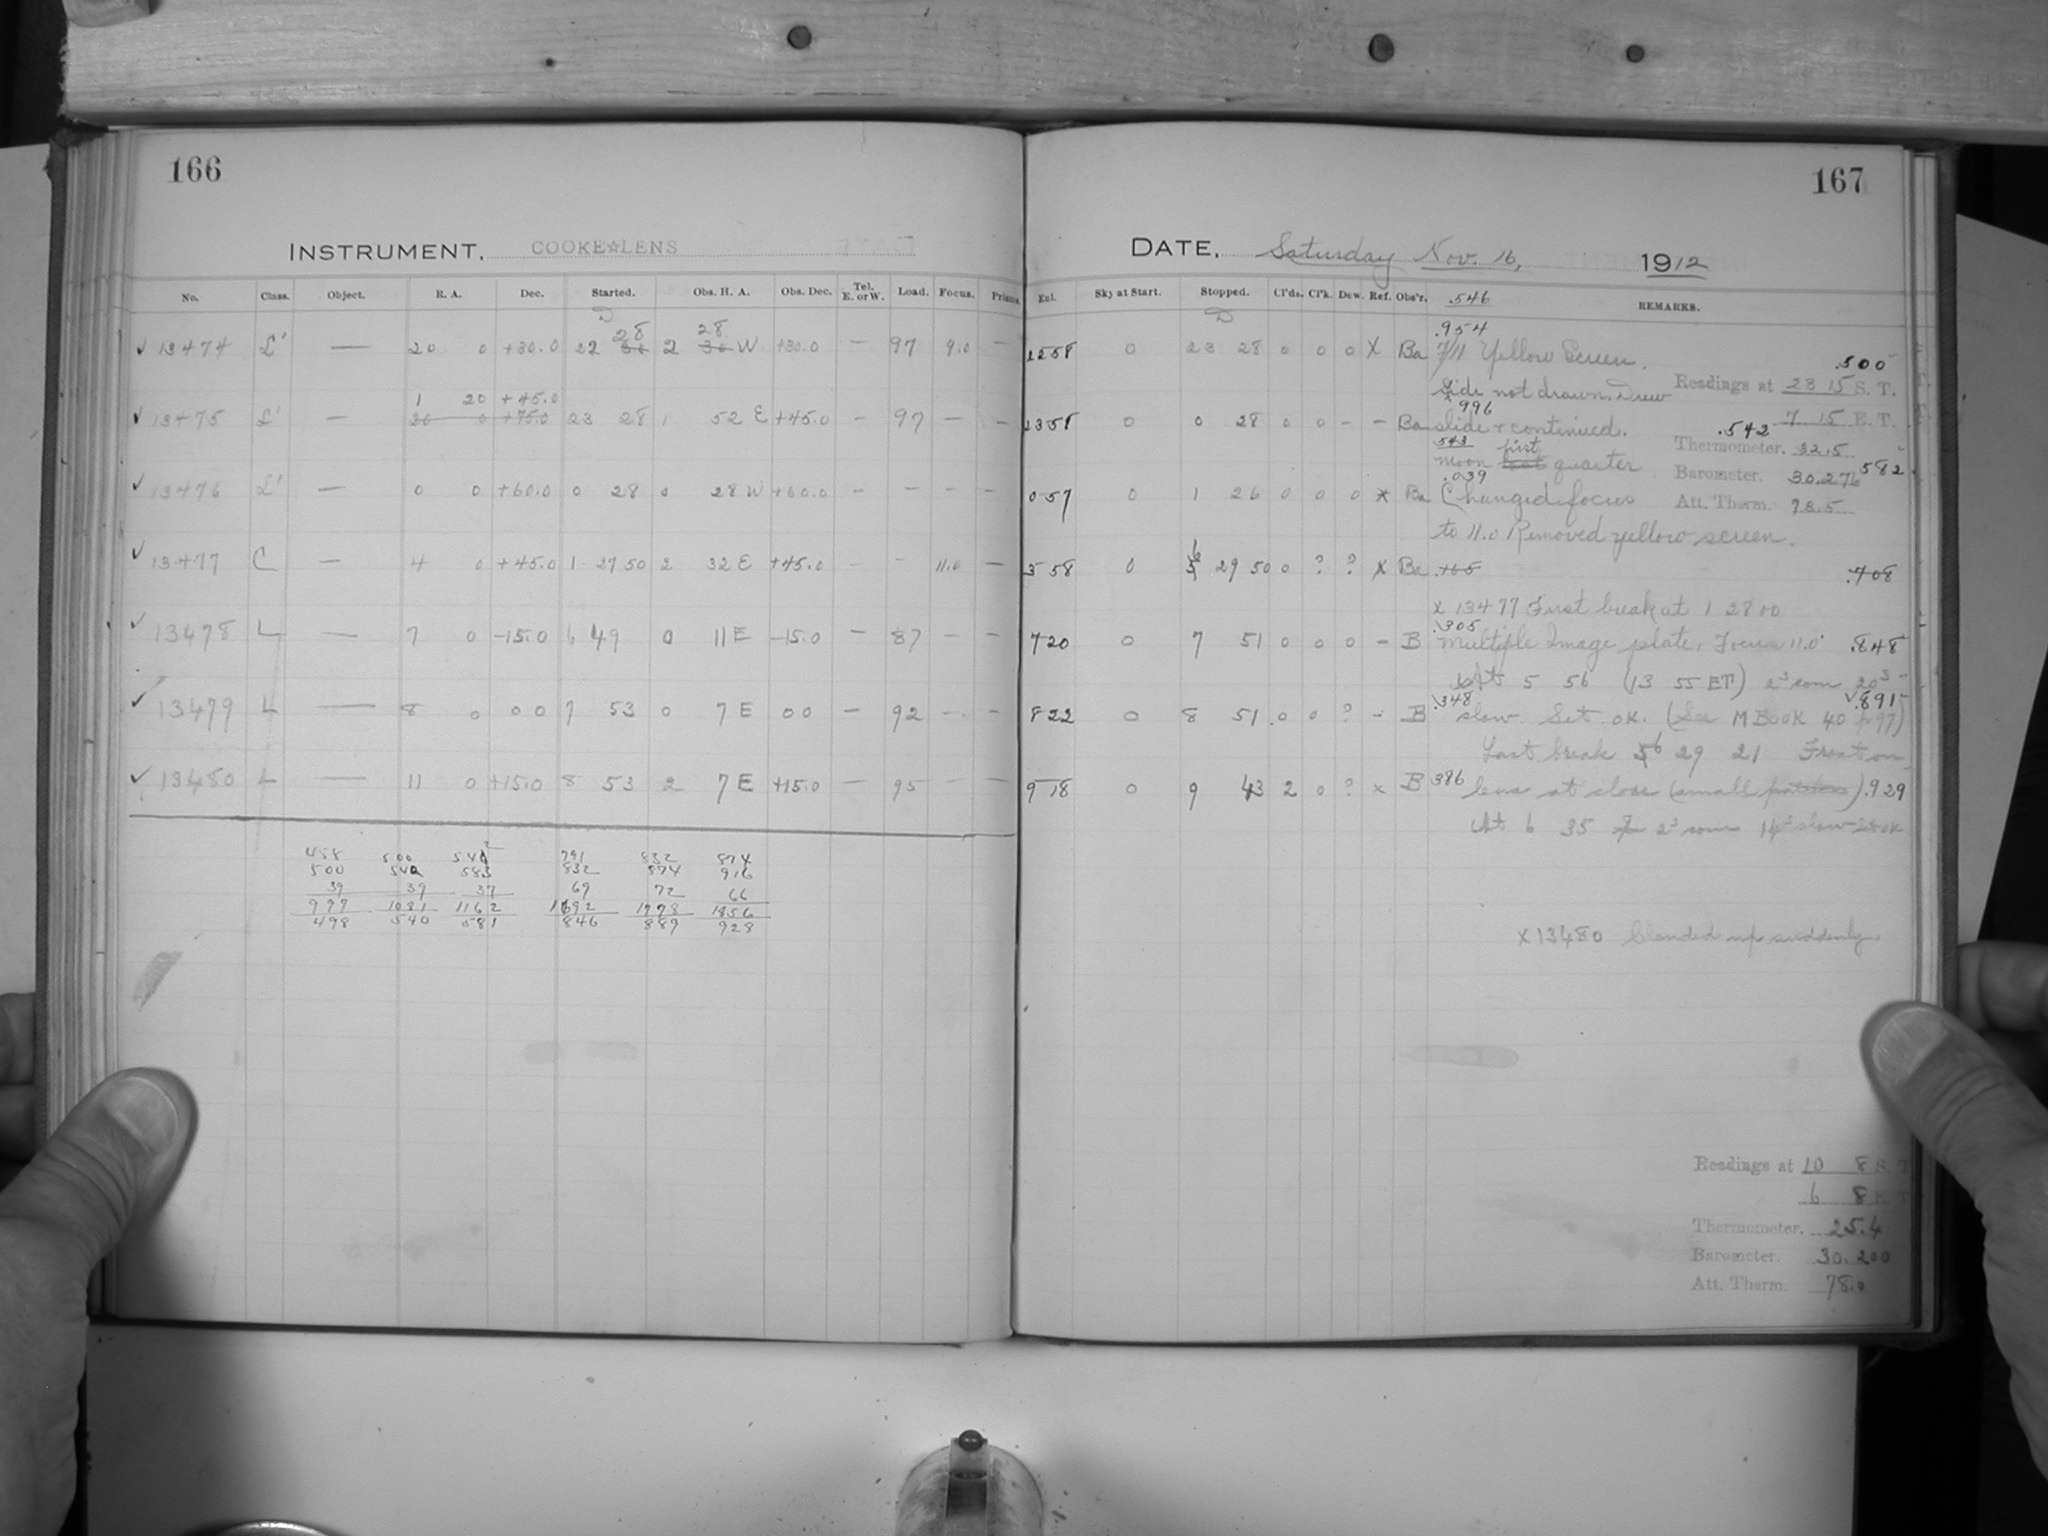 166
INSTRUMENT. COOKE☆LENS
No. Class. Object. R. A. Dec. Started. Obs. H. A. Obs. Dec. Tel. E. or W. Load. Focus. Prisms
28 28
✓ 13474 L' — 20 0 +30.0 22 30 2 30 W +30.0 — 97 9.0 —
1 20 +45.0
✓ 13475 L' — 20 0 +75.0 23 28 1 52 E +45.0 — 97 — —
✓ 13476 L' — 0 0 +60.0 0 28 0 28 W +60.0 — — — —
✓ 13477 C — 4 0 +45.0 1 27 50 2 32 E +45.0 — — 11.0 —
✓ 13478 L — 7 0 -15.0 6 49 0 11 E -15.0 — 87 — —
✓ 13479 L — 8 0 0 0 7 53 0 7 E 0 0 — 92 — —
✓ 13480 L — 11 0 +15.0 8 53 2 7 E +15.0 — 95 — —
458 500 542 791 832 874
500 542 583 832 874 916
39 39 37 69 72 66
997 1081 1162 1692 1778 1856
498 540 581 846 889 928
167
DATE. Saturday Nov. 16, 1912
Ext. Sky at Start. Stopped. Cl'ds. Cl'k. Dew. Ref. Obs'r. .546 REMARKS.
.954
2258 0 23 28 0 0 0 X Ba 7/11 Yellow Screen. .500
Slide not drawn. Drew Readings at 23 15 S. T.
.996
2358 0 0 28 0 0 – – Ba slide & continued. 7 15 E. T.
.543 first .542 Thermometer. 32.5
moon last quarter Barometer. 30.276 582
.039
0 57 0 1 26 0 0 0 x Ba Changed focus Att. Therm. 78.5
to 11.0 Removed yellow screen.
6
3 58 0 5 29 50 0 ? ? X Ba .708
X 13477 First break at 1 28 00
.305
7 20 0 7 51 0 0 0 – B Multiple Image plate, Focus 11.0 .848
At 5 56 (13 55 ET) 20
.348 .891
8 22 0 8 51 0 0 ? – B slow. Set OK. (See M Book 40 p 97)
Last break 6 29 21 Frost on
9 18 0 9 43 2 0 ? x B 386 lens at close (small ) .929
At 6 35 slow
X 13480 Clouded up suddenly.
Readings at 10 8 S. T.
6 8
Thermometer. 25.4
Barometer. 30.200
Att. Therm. 78.0